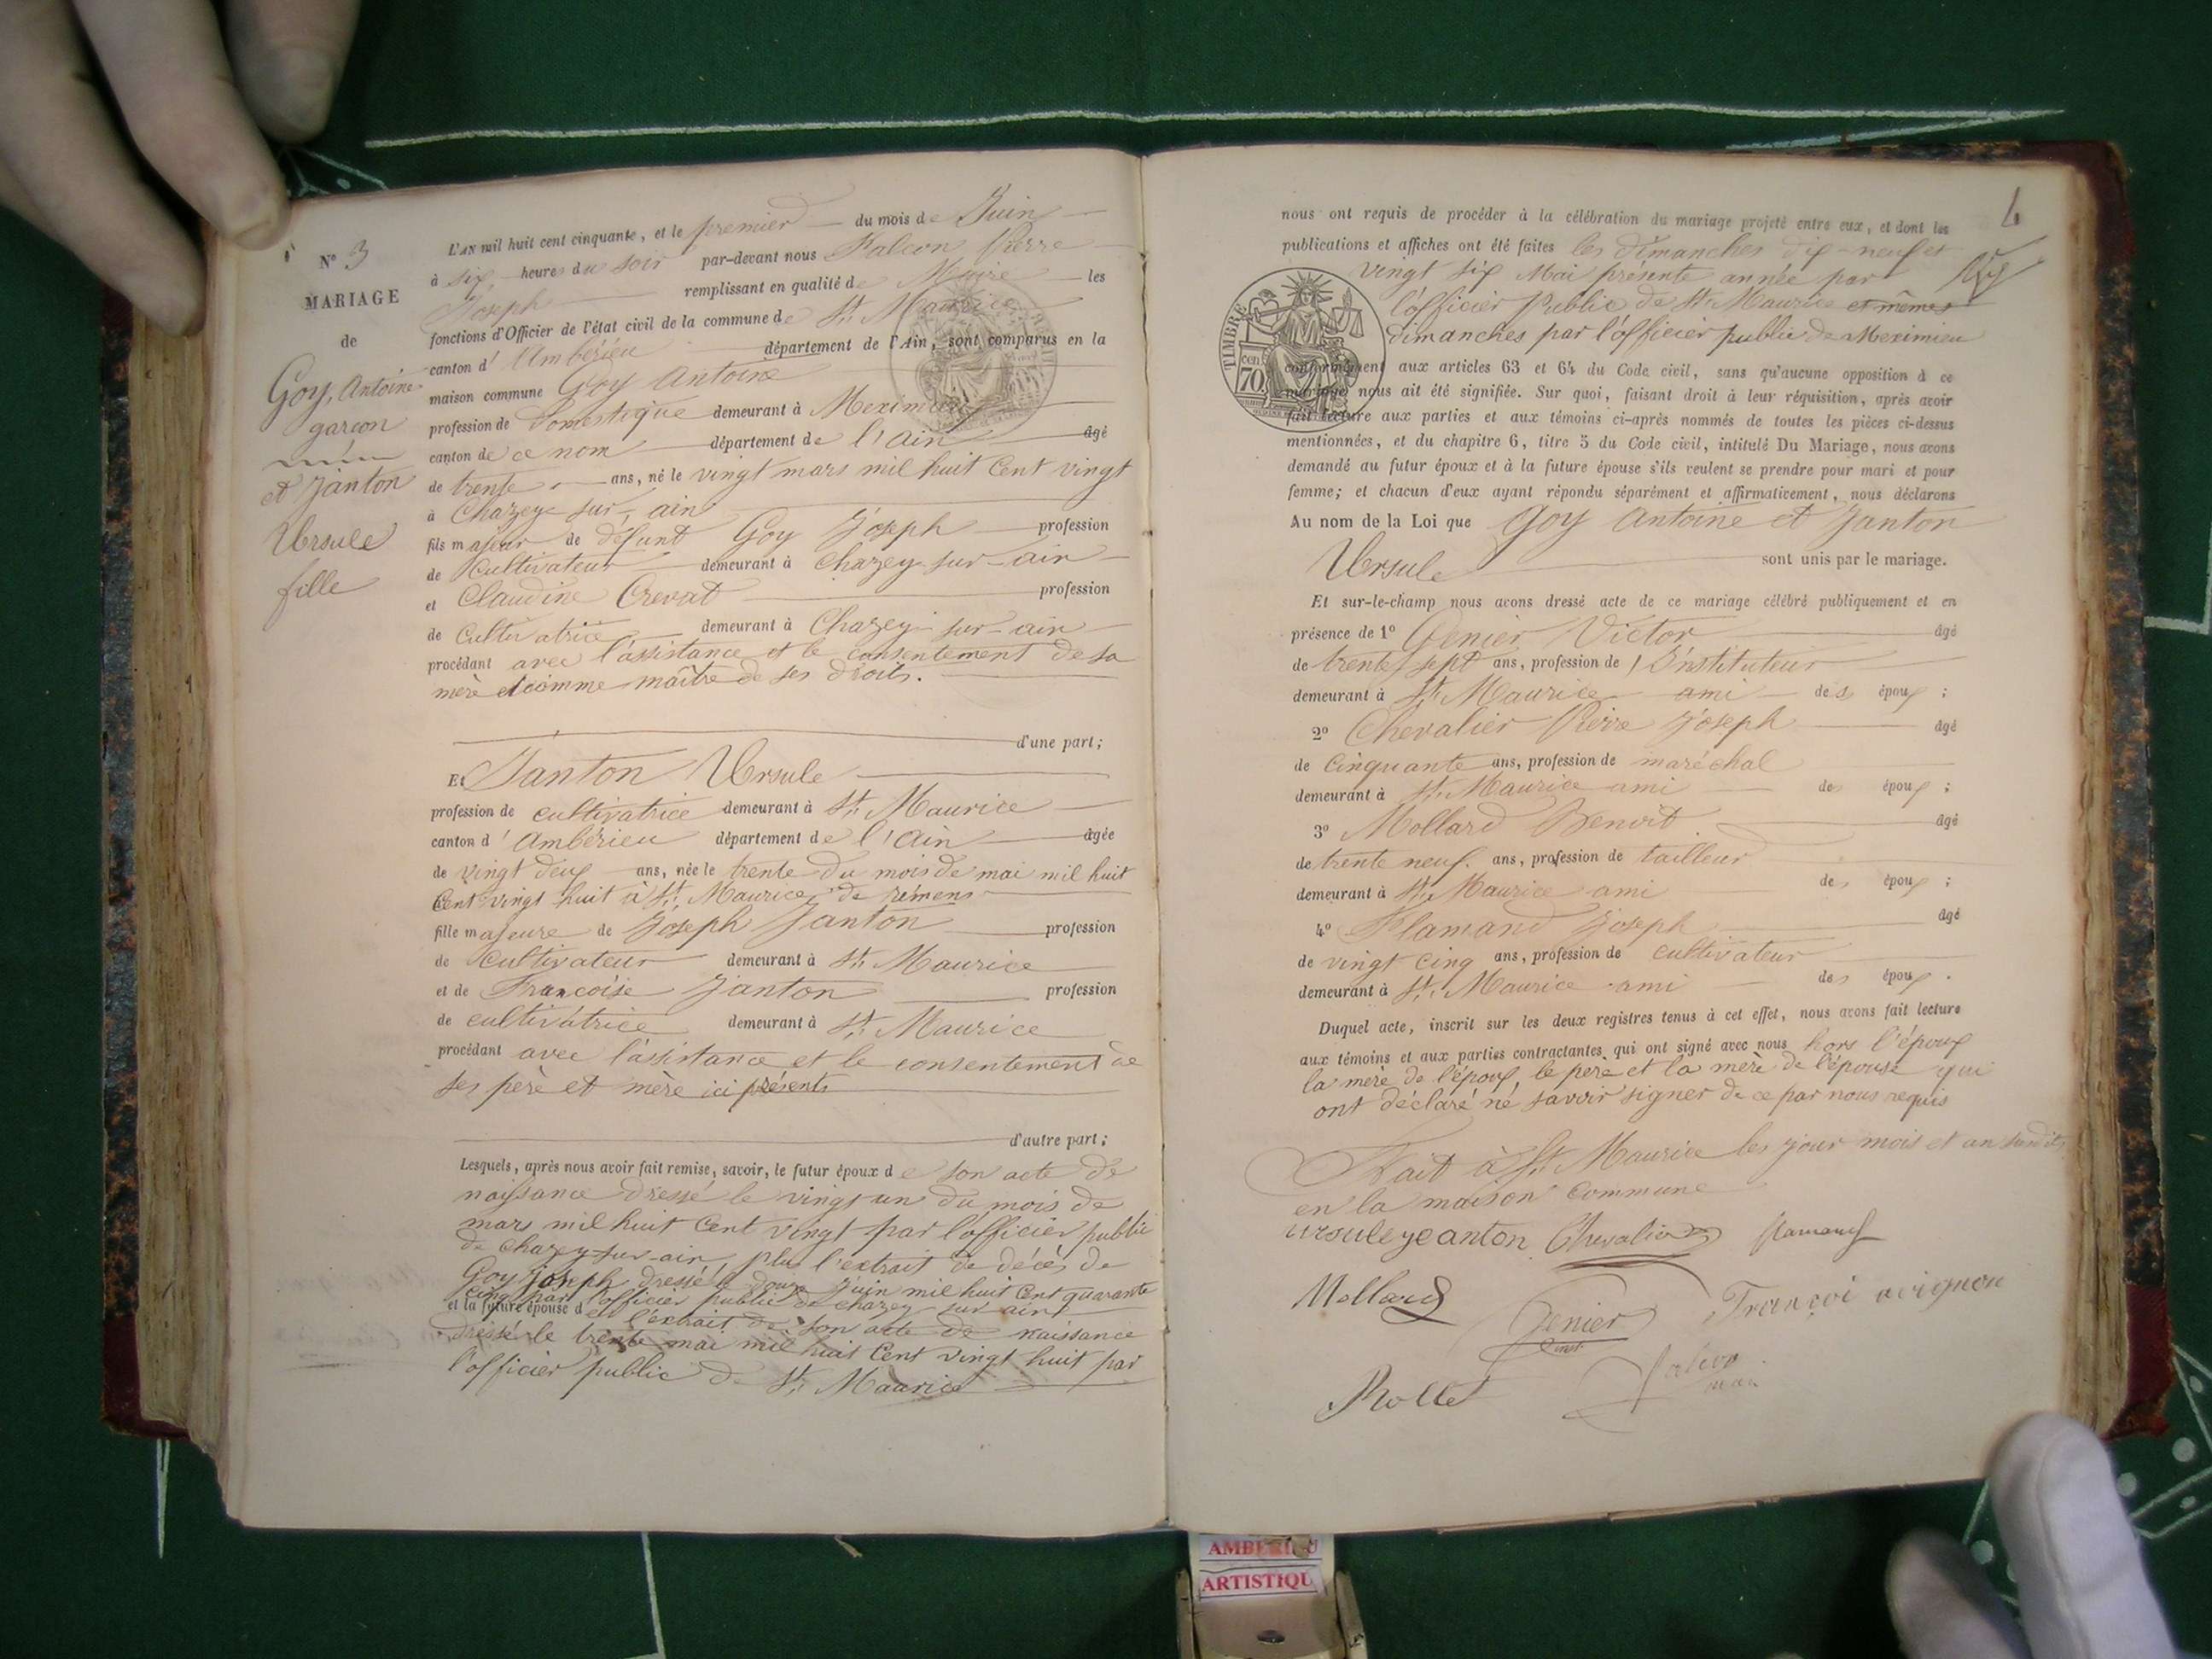 N° 3
MARIAGE
de
Goy, Antoine
garçon
et Janton
Ursule
fille
L'AN mil huit cent cinquante, et le premier du mois de Juin
à six heures du soir par-devant nous Falcon Pierre
Joseph remplissant en qualité de Maire les
fonctions d'Officier de l'état civil de la commune de St. Maurice
canton d'Ambérieu département de l'Ain, sont comparus en la
maison commune Goy Antoine
profession de Domestique demeurant à Meximieu
canton de ce nom département de l'Ain âgé
de trente ans, né le vingt mars mil huit Cent vingt
à Chazey-sur-ain
fils majeur de défunt Goy Joseph profession
de Cultivateur demeurant à Chazey-sur-ain
et Claudine Crevat profession
de Cultivatrice demeurant à Chazey-sur-ain
procédant avec l'assistance et le consentement de sa
mère et comme maître de ses droits.
d'une part;
Et Janton Ursule
profession de cultivatrice demeurant à St. Maurice
canton d'Ambérieu département de l'Ain âgée
de vingt deux ans, née le trente du mois de mai mil huit
Cent vingt huit à St. Maurice de rémens
fille majeure de Joseph Janton profession
de Cultivateur demeurant à St. Maurice
et de Françoise Janton profession
de cultivatrice demeurant à St. Maurice
procédant avec l'assistance et le consentement de
ses père et mère ici présents
d'autre part;
Lesquels, après nous avoir fait remise, savoir, le futur époux de son acte de
naissance dressé le vingt un du mois de
mars mil huit Cent vingt par l'officier public
de Chazey-sur-ain, plus l'extrait de décès de
Goy Joseph dressé le douze Juin mil huit Cent quarante
cinq par l'officier public de Chazey sur ain,
et la future épouse de l'extrait de son acte de naissance
dressé le trente mai mil huit Cent vingt huit par
l'officier public de St. Maurice
6
nous ont requis de procéder à la célébration du mariage projeté entre eux, et dont les
publications et affiches ont été faites les dimanches dix-neuf et
vingt six Mai présente année par
l'officier Public de St. Maurice et mêmes
dimanches par l'officier public de Meximieu
TIMBRE
cen
70
conformément aux articles 63 et 64 du Code civil, sans qu'aucune opposition à ce
mariage nous ait été signifiée. Sur quoi, faisant droit à leur réquisition, après avoir
fait lecture aux parties et aux témoins ci-après nommés de toutes les pièces ci-dessus
mentionnées, et du chapitre 6, titre 5 du Code civil, intitulé Du Mariage, nous avons
demandé au futur époux et à la future épouse s'ils veulent se prendre pour mari et pour
femme; et chacun d'eux ayant répondu séparément et affirmativement, nous déclarons
Au nom de la Loi que Goy Antoine et Janton
Ursule sont unis par le mariage.
Et sur-le-champ nous avons dressé acte de ce mariage célébré publiquement et en
présence de 1° Genier Victor âgé
de trente sept ans, profession de Instituteur
demeurant à St. Maurice ami des époux;
2° Chevalier Pierre Joseph âgé
de Cinquante ans, profession de maréchal
demeurant à St. Maurice ami des époux;
3° Mollard Benoit âgé
de trente neuf. ans, profession de tailleur
demeurant à St. Maurice ami des époux;
4° Flamand Joseph âgé
de vingt cinq ans, profession de cultivateur
demeurant à St. Maurice ami des époux.
Duquel acte, inscrit sur les deux registres tenus à cet effet, nous avons fait lecture
aux témoins et aux parties contractantes qui ont signé avec nous hors l'époux
la mère de l'époux, le père et la mère de l'épouse qui
ont déclaré ne savoir signer de ce par nous requis
Fait à St. Maurice les jour mois et an susdits
en la maison Commune
ursule jeanton Chevalier flamand
Mollard Genier Françoi avignon
inst.
Rollet falcon
maire
AMBERIEU
ARTISTIQU